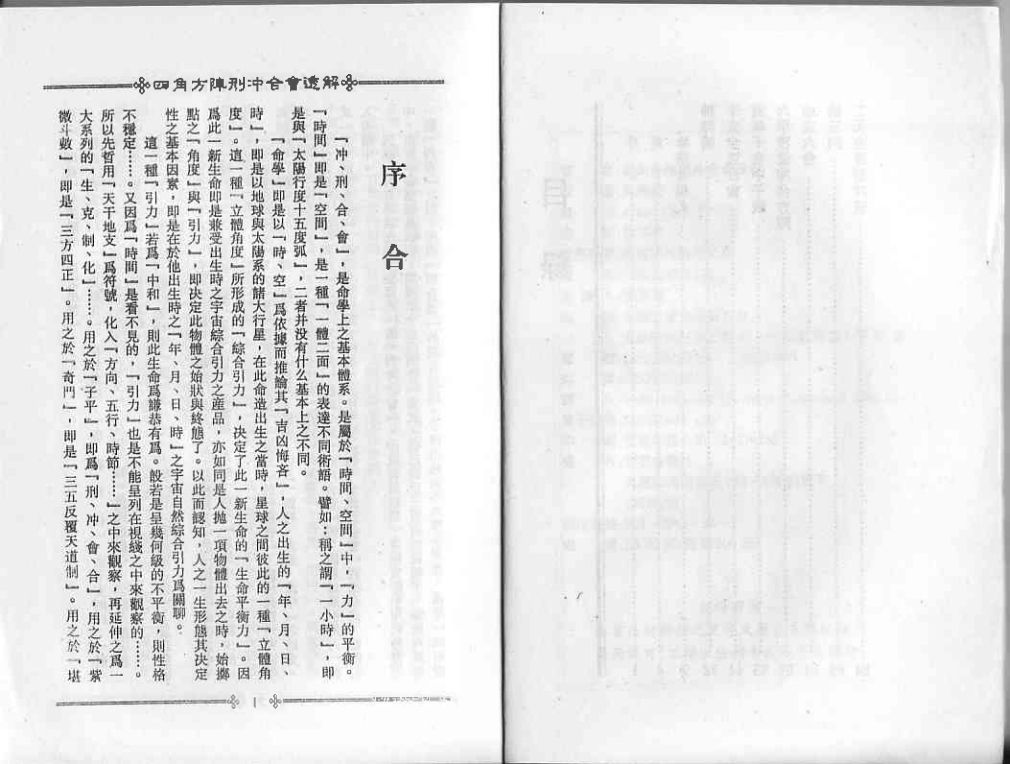 四角方陣刑冲合會透解
序合
「冲、刑、合、會」，是命學上之基本體系。是屬於「時間、空間」中，「力」的平衡。
「時間」即是「空間」，是一種「一體二面」的表達不同術語。譬如：稱之謂「一小時」，即
是與「太陽行度十五度弧」，二者并没有什么基本上之不同。
「命學」即是以「時、空」爲依據而推論其「吉凶悔吝」，人之出生的「年、月、日、
時」，即是以地球與太陽系的諸大行星，在此命造出生之當時，星球之間彼此的一種「立體角
度」。這一種「立體角度」所形成的「綜合引力」，决定了此一新生命的「生命平衡力」。因
爲此一新生命即是兼受出生時之宇宙綜合引力之産品，亦如同是人抛一項物體出去之時，始擲
點之「角度」與「引力」，即决定此物體之始狀與終態了。以此而認知，人之一生形態其决定
性之基本因素，即是在於他出生時之「年、月、日、時」之宇宙自然綜合引力爲關聯。
這一種「引力」若爲「中和」，則此生命爲謙恭有爲。設若是呈幾何級的不平衡，則性格
不穩定……。又因爲「時間」是看不見的，「引力」也是不能呈列在視綫之中來觀察的……。
所以先哲用「天干地支」爲符號，化入「方向、五行、時節……」之中來觀察，再延伸之爲一
大系列的「生、克、制、化」……。用之於「子平」，即爲「刑、冲、會、合」，用之於「紫
微斗數」，即是「三方四正」。用之於「奇門」，即是「三五反覆天道制」。用之於「堪
1